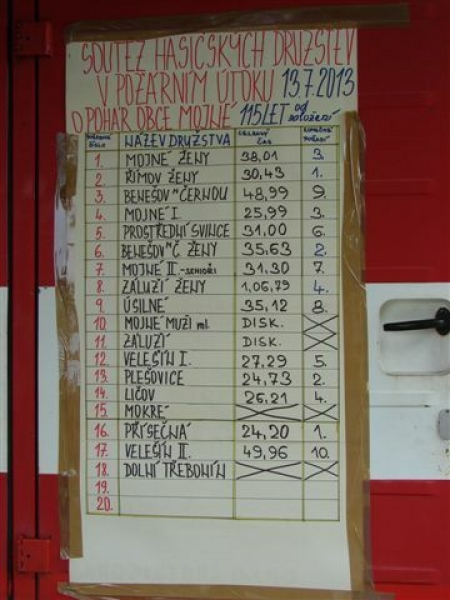 SOUTĚŽ HASIČSKÝCH DRUŽSTEV
V POŽÁRNÍM ÚTOKU 13.7.2013
O POHÁR OBCE MOJNÉ 115 LET od založení
NÁZEV DRUŽSTVA ČAS
1. MOJNÉ ŽENY 38,01 3.
2. ŘÍMOV ŽENY 30,43 1.
3. BENEŠOV N. ČERNOU 48,99 9.
4. MOJNÉ I. 25,99 3.
5. PROSTŘEDNÍ SVINCE 31.00 6.
6. BENEŠOV N. Č. ŽENY 35,63 2.
7. MOJNÉ II.-SENIOŘI 31.30 7.
8. ZÁLUŽÍ ŽENY 1,06,79 4.
9. ÚSILNÉ 35,12 8.
10. MOJNÉ MUŽI ml. DISK.
11. ZÁLUŽÍ DISK.
12. VELEŠÍN I. 27,29 5.
13. PLEŠOVICE 24,73 2.
14. LIČOV 26,21 4.
15. MOKRÉ
16. PŘÍSEČNÁ 24,20 1.
17. VELEŠÍN II. 49,96 10.
18. DOLNÍ TŘEBONÍN
19.
20.